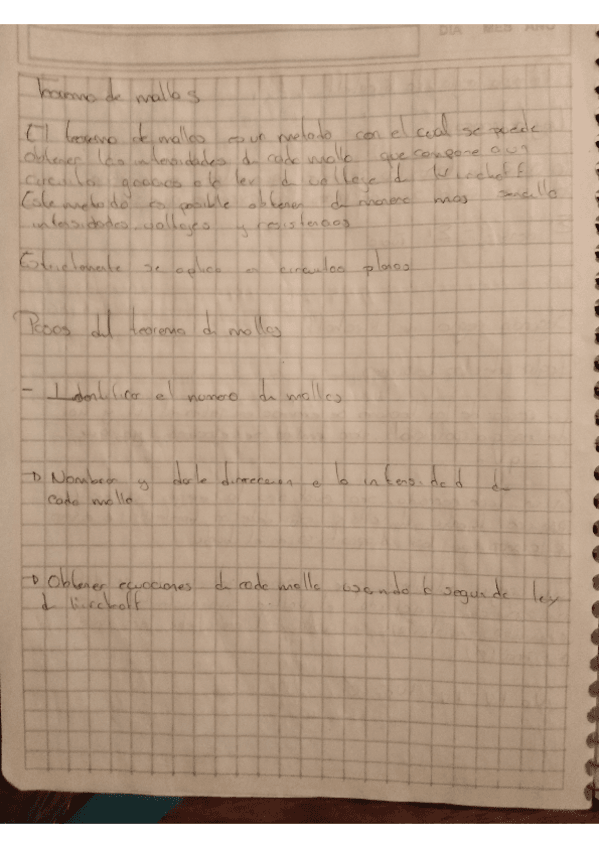 DIA MES AÑO
teorema de mallas
El teorema de mallas es un metodo con el cual se puede
obtener las intensidades de cada malla que compone a un
circuito gracias a la ley de voltaje de kirchoff
Este metodo es posible obtener de manera mas sencilla
intensidades, voltajes y resistencias
se aplica en circuitos planos
Pasos del teorema de mallas
- Identificar el numero de mallas
Nombrar y darle direccion a la intensidad de
cada malla
Obtener ecuaciones de cada malla usando la segunda ley
d kirchoff